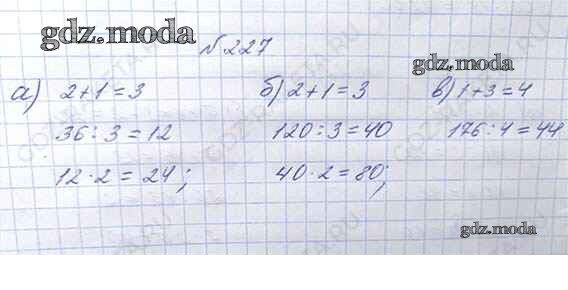 gdz.moda
№ 227
gdz.moda
а) 2+1=3
36:3=12
12·2=24;
б) 2+1=3
120:3=40
40·2=80;
в) 1+3=4
176:4=44
gdz.moda